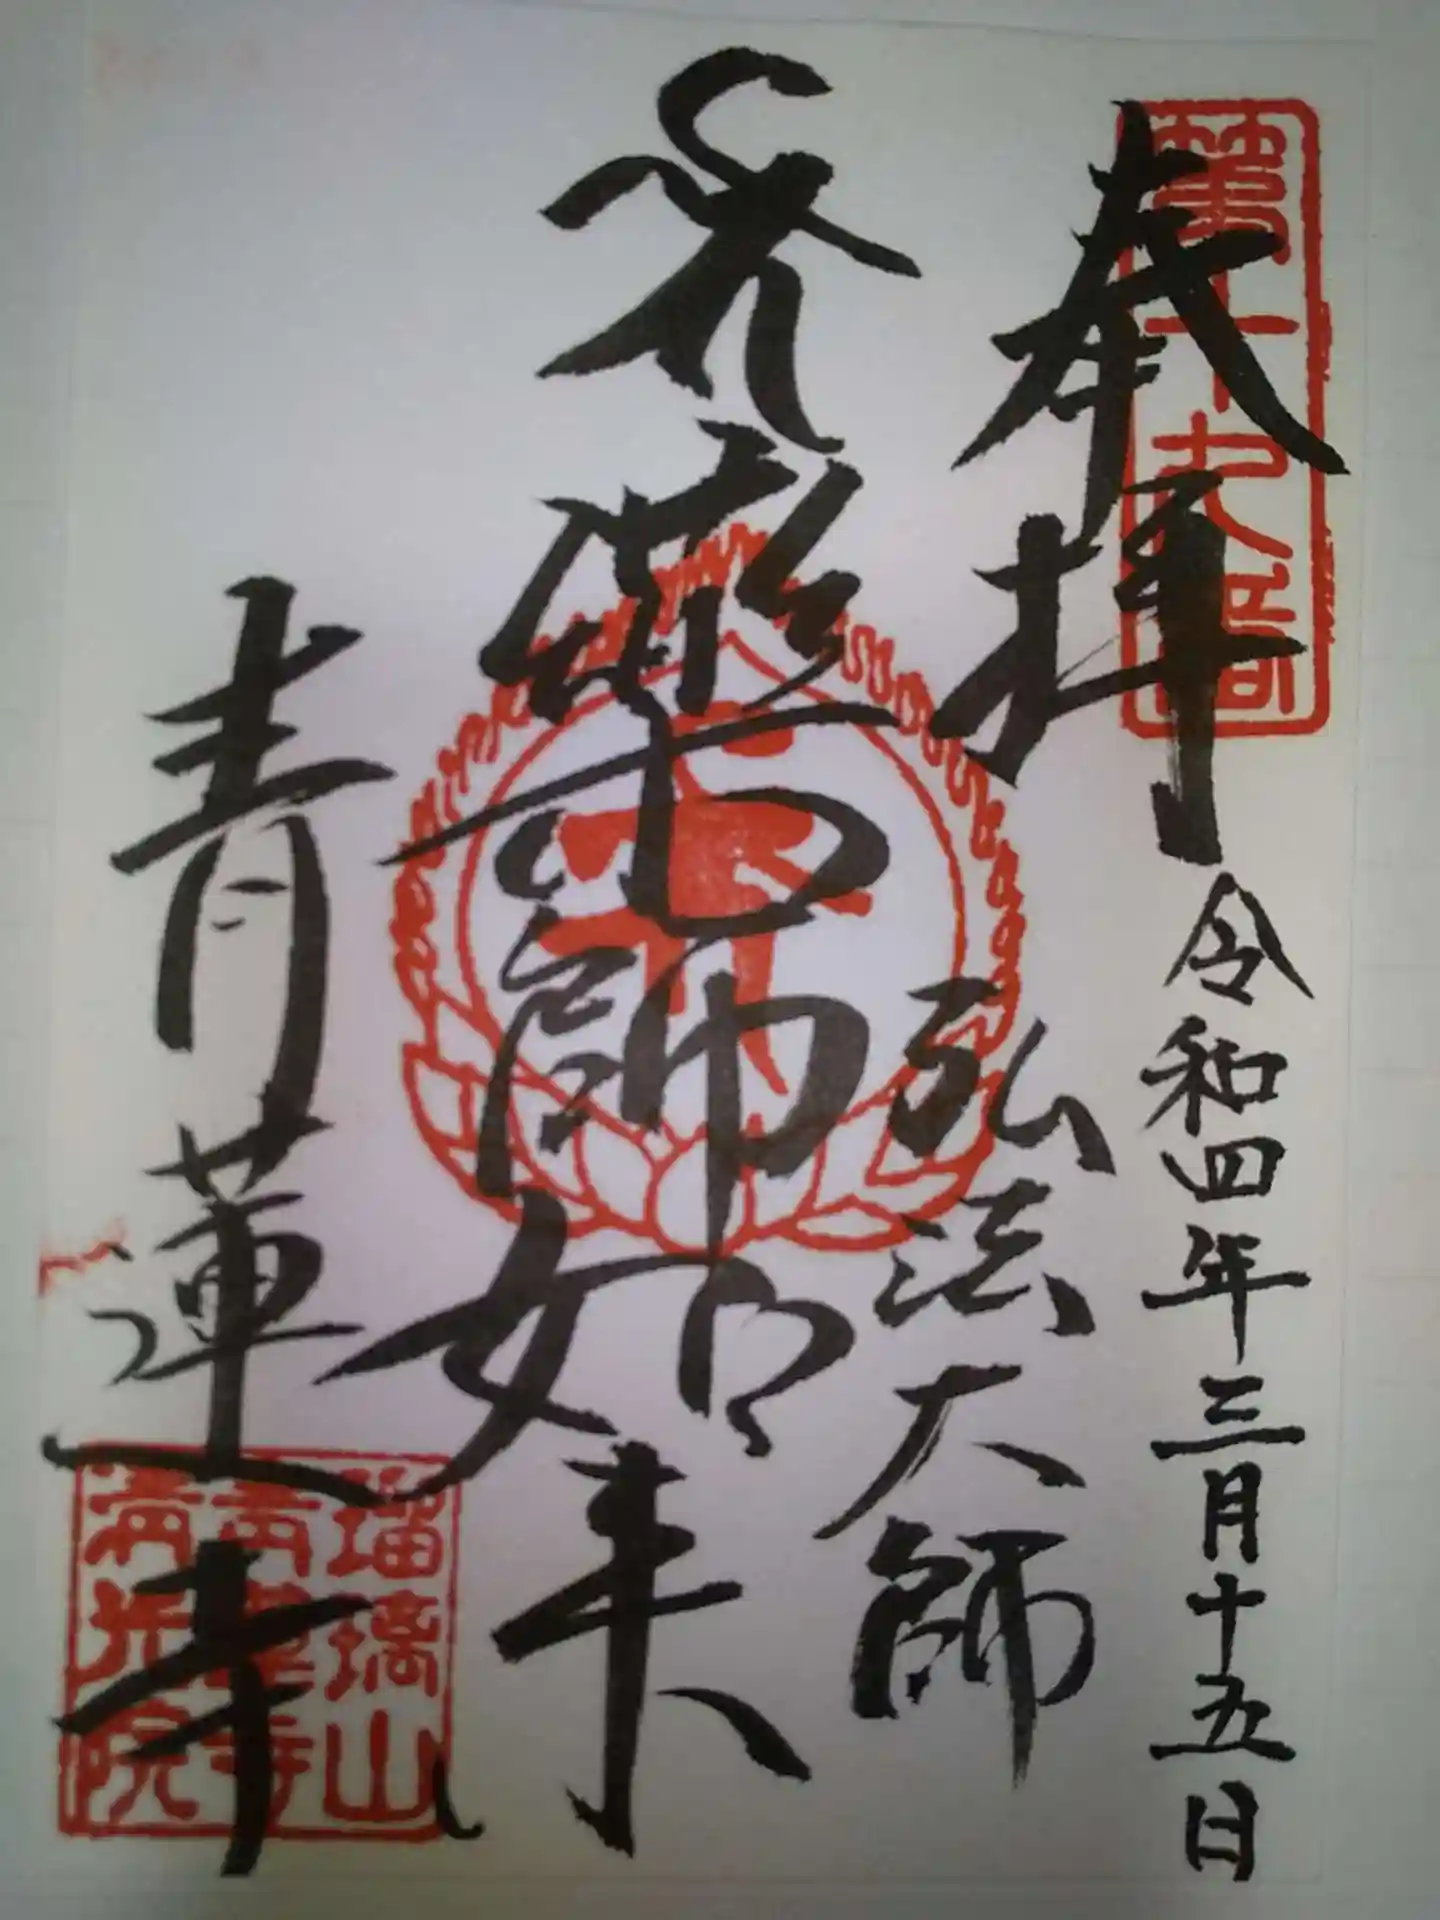 第十九番
奉拝 令和四年三月十五日
弘法大師
薬師如来
青蓮寺
瑠璃山
青蓮寺
光院